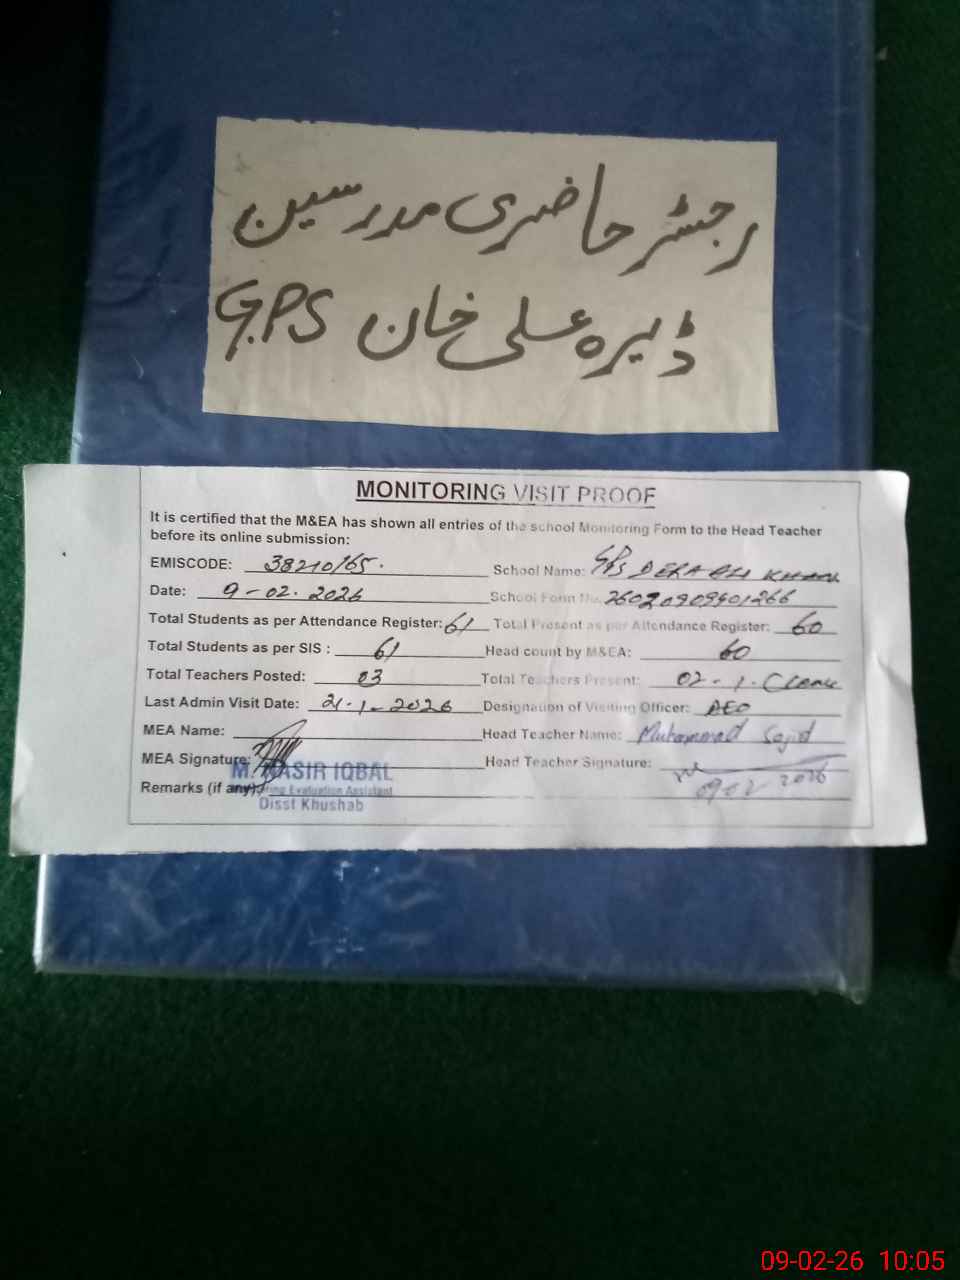 رجسٹر حاضری مدرسین
GPS ڈیرہ علی خان
MONITORING VISIT PROOF
It is certified that the M&EA has shown all entries of the school Monitoring Form to the Head Teacher
before its online submission:
EMISCODE: 38210165. School Name: GPS DERA ALI KHAN
Date: 9-02.2026 School Form No. 26020909401266
Total Students as per Attendance Register: 61 Total Present as per Attendance Register: 60
Total Students as per SIS : 61 Head count by M&EA: 60
Total Teachers Posted: 03 Total Teachers Present: 02-1.
Last Admin Visit Date: 21-1-2026 Designation of Visiting Officer: AEO
MEA Name: Head Teacher Name: Muhammad Sajid
MEA Signature: Head Teacher Signature:
M. NASIR IQBAL
09/02 2026
Remarks (if any):
Evaluation Assistant
Disst Khushab
09-02-26 10:05